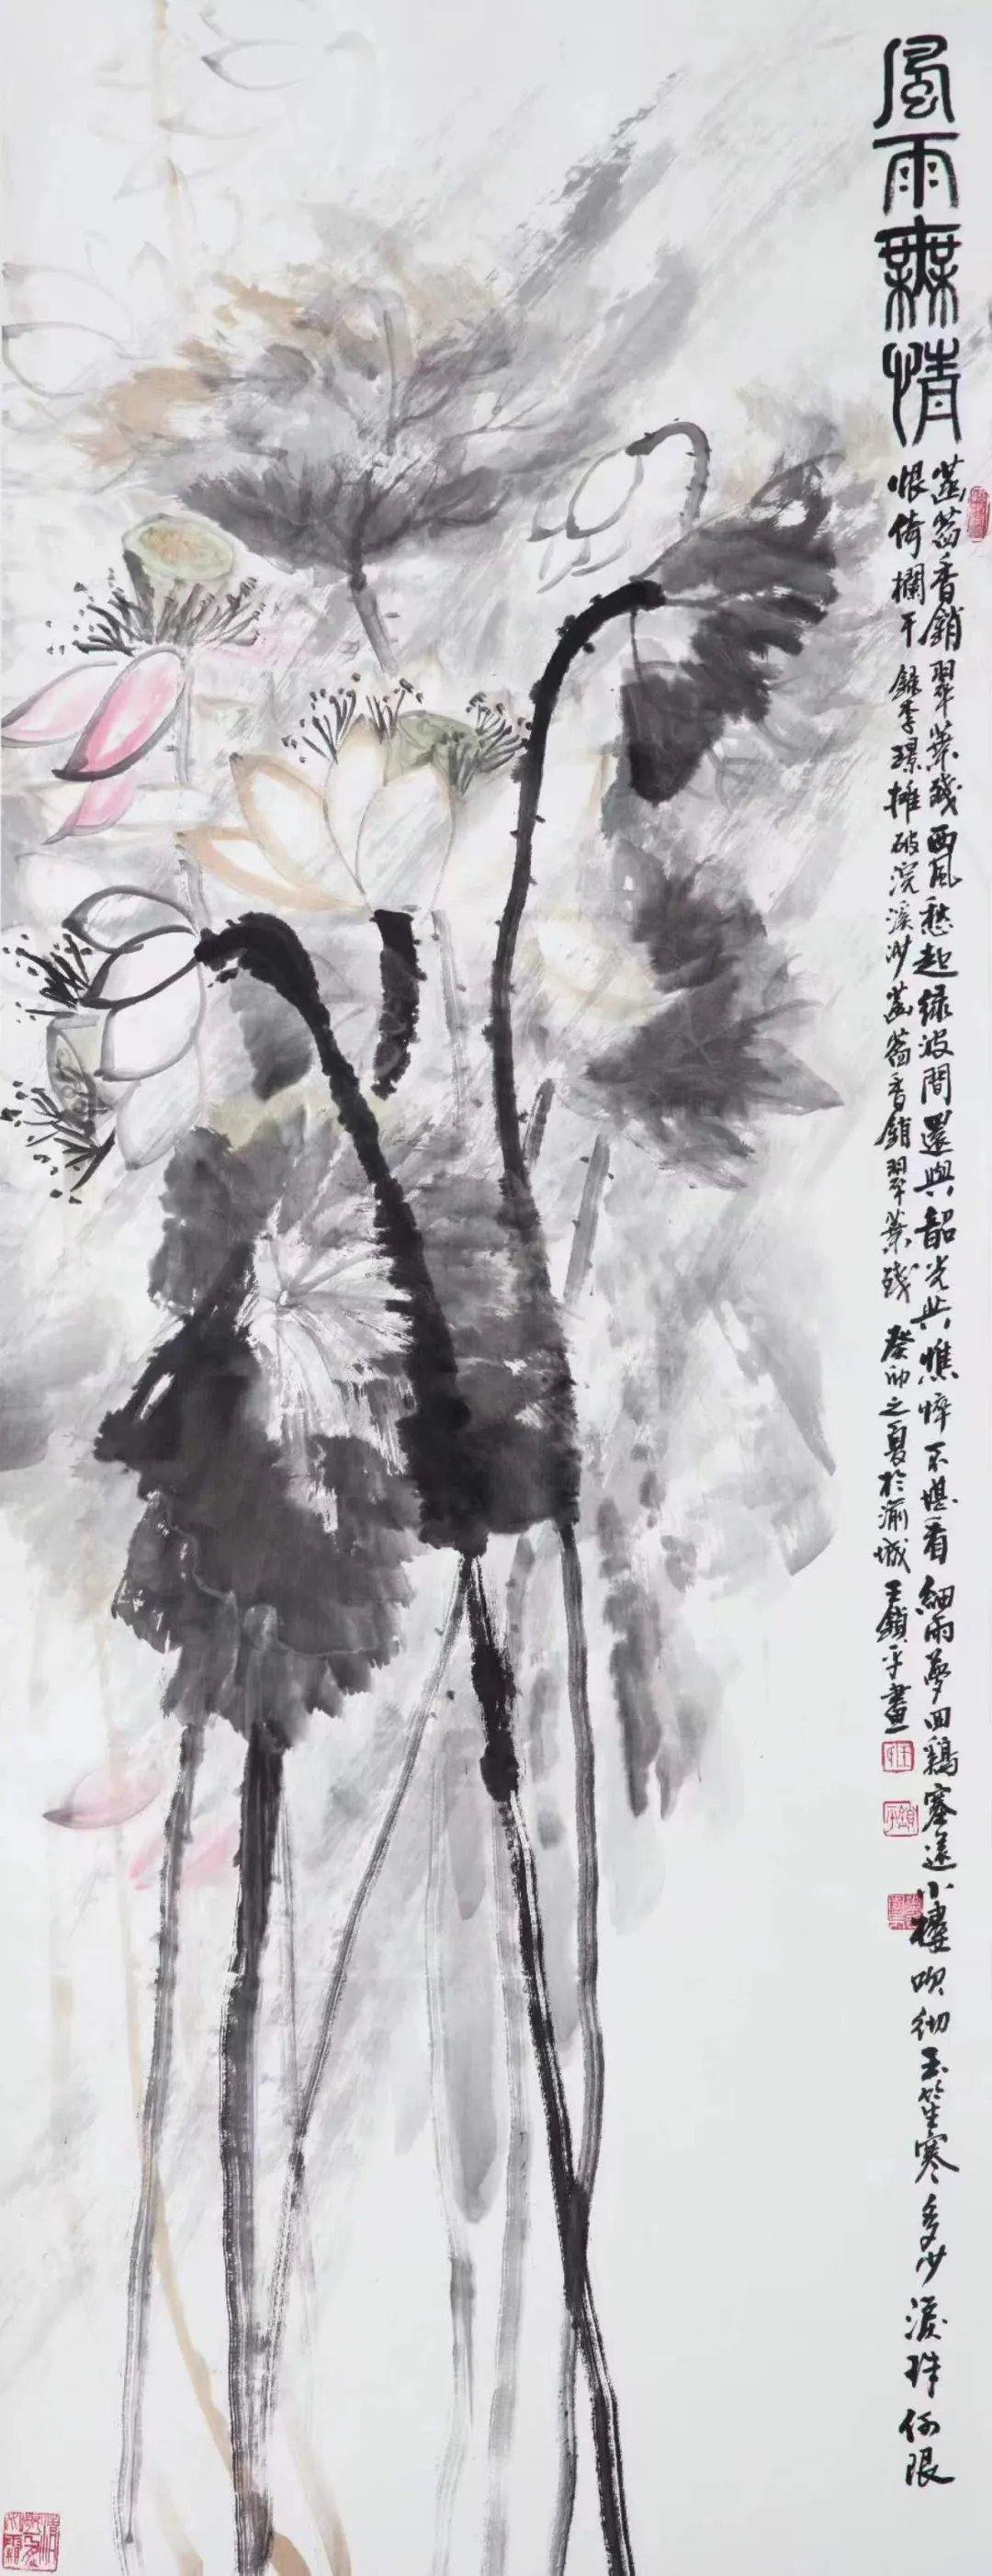 風雨無情
菡萏香銷翠葉殘西風愁起緑波間還與韶光共憔悴不堪看細雨夢回鷄塞遠小樓吹徹玉笙寒多少淚珠何限
恨倚欄干 錄李璟攤破浣溪沙菡萏香銷翠葉殘 癸卯之夏於渝城 王鎖平畫